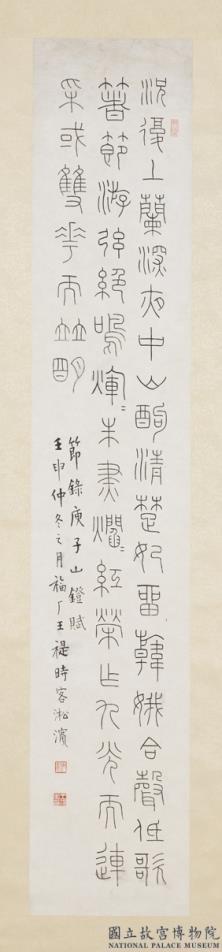 況復上蘭深夜中山醑清楚妃留韓娥合聲低歌
著節游絃絕鳴煇〻朱燼爓〻紅榮乍九光而連
采或雙花而並朙
節錄庾子山鐙賦
壬申仲冬之月福厂王禔時客淞濱
國立故宮博物院
NATIONAL PALACE MUSEUM